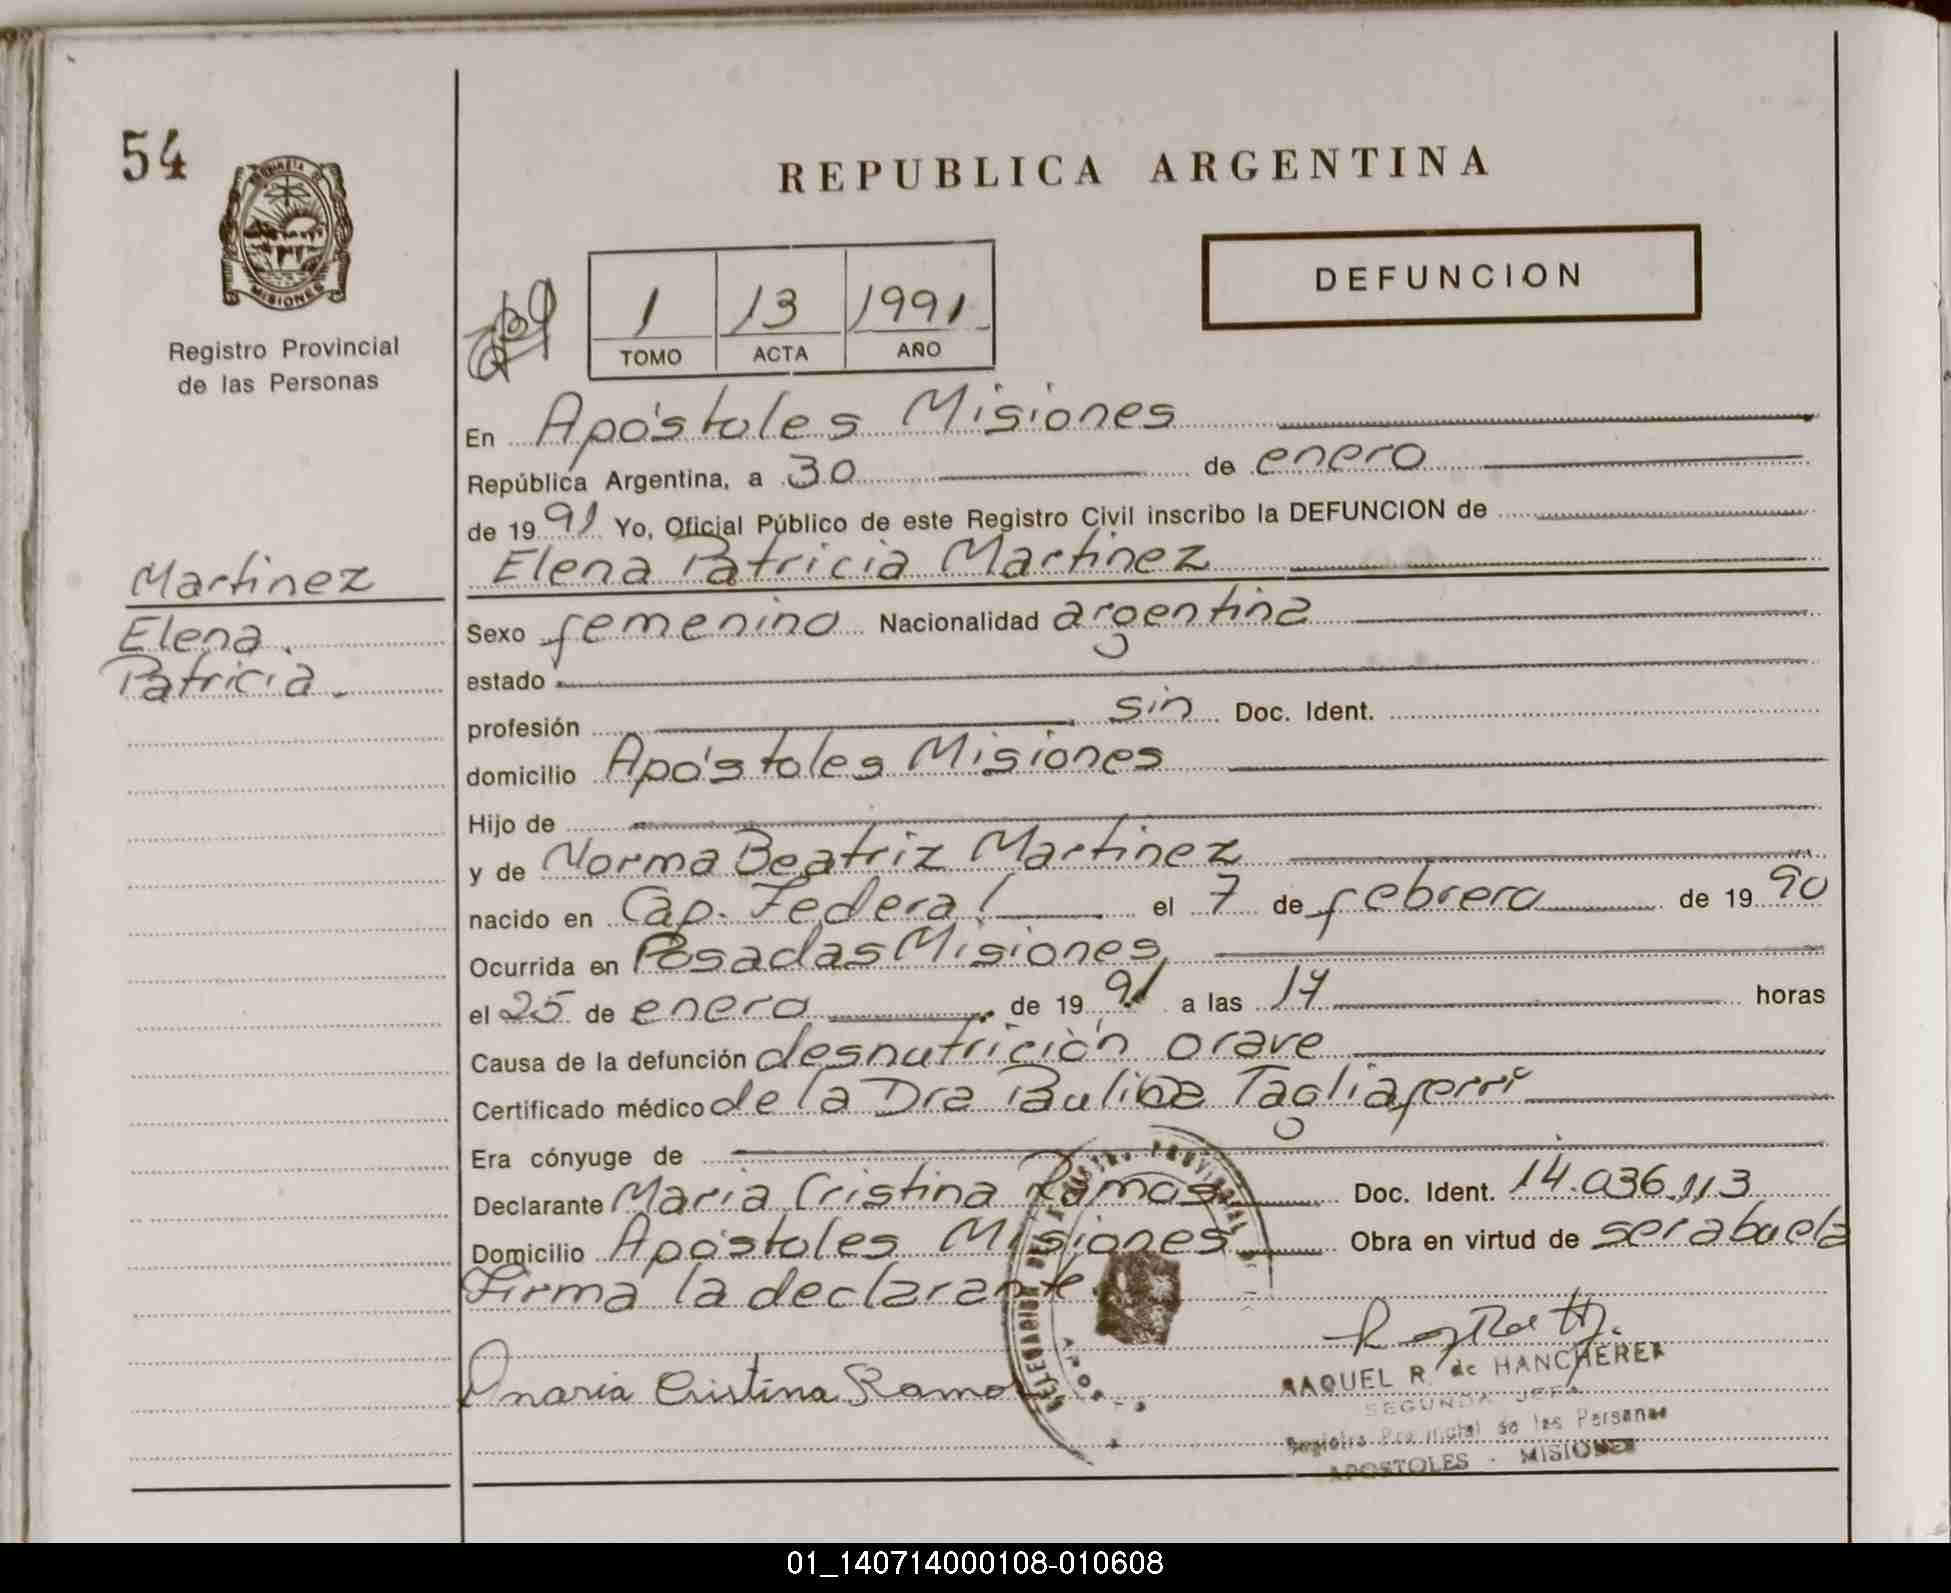 54
MISIONES
Registro Provincial
de las Personas
REPUBLICA ARGENTINA
DEFUNCION
1 13 1991
TOMO ACTA AÑO
En Apóstoles Misiones
República Argentina, a 30 de enero
de 1991 Yo, Oficial Público de este Registro Civil inscribo la DEFUNCION de
Elena Patricia Martinez
Martinez
Elena
Patricia.
Sexo femenino Nacionalidad argentina
estado
profesión sin Doc. Ident.
domicilio Apóstoles Misiones
Hijo de
y de Norma Beatriz Martinez
nacido en Cap. Federal el 7 de febrero de 1990
Ocurrida en Posadas Misiones
el 25 de enero de 1991 a las 17 horas
Causa de la defunción desnutrición grave
Certificado médico de la Dra Tagliaferri
Era cónyuge de
Declarante Maria Cristina Ramos Doc. Ident. 14.036.113
Domicilio Apóstoles Misiones Obra en virtud de ser abuela
Firma la declarante
Maria Cristina Ramos
RAQUEL R. de HANCHEREK
SEGUNDA JEFA
Registro Provincial de las Personas
APOSTOLES - MISIONES
01_140714000108-010608